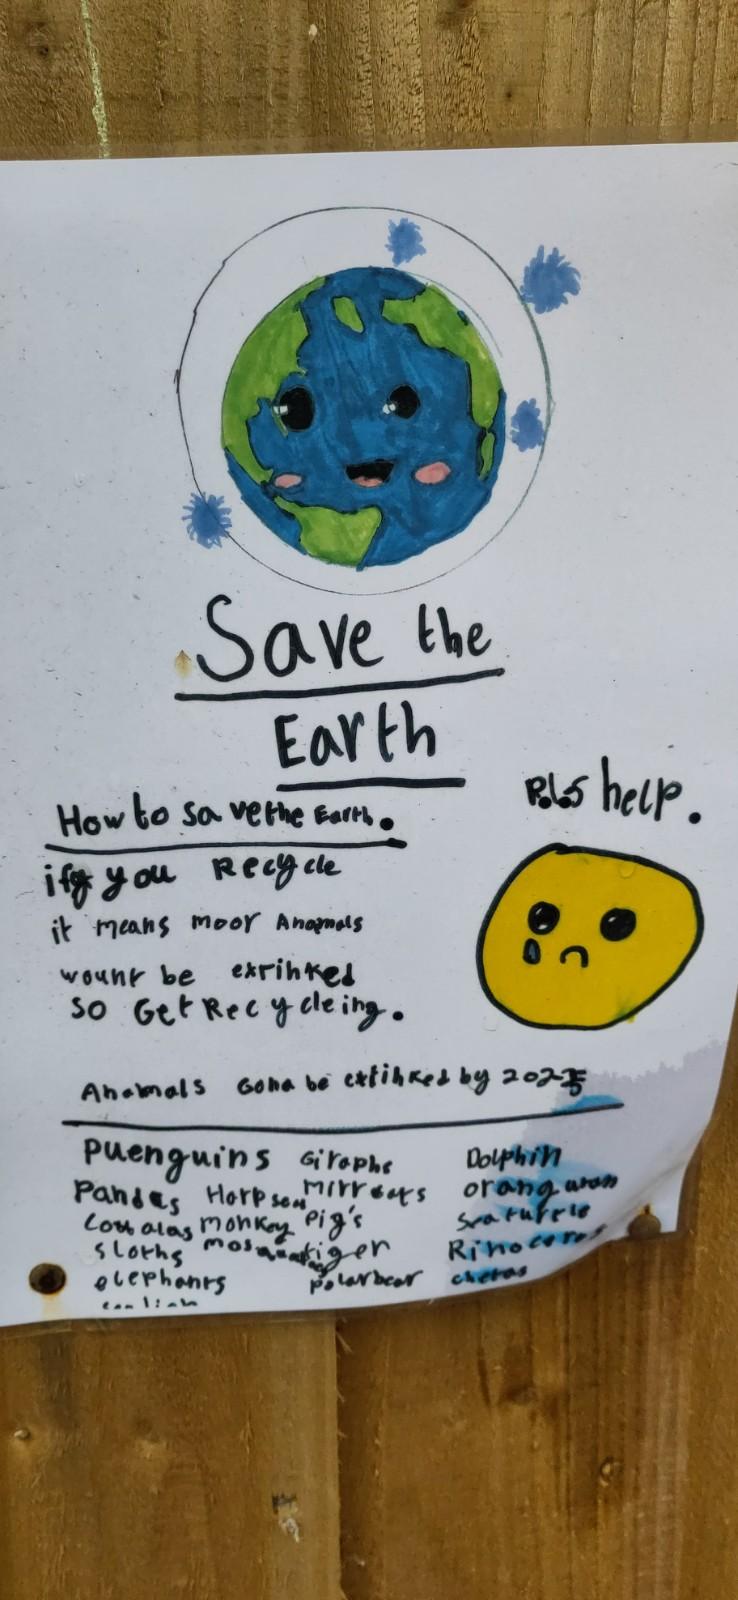 Save the
Earth
P.L.S help.
How to save the Earth.
ify you Recycle
it means moor Anamals
wount be extinked
so Get Recycleing.
Anamals Gona be extinked by 2025
Puenguins Giraphe Dolphin
Pandas Harp seal mirrcats orangutan
Coualas monkey Pig's Sea turtle
Sloths tiger Rinoceros
elephants Polar bear chetas